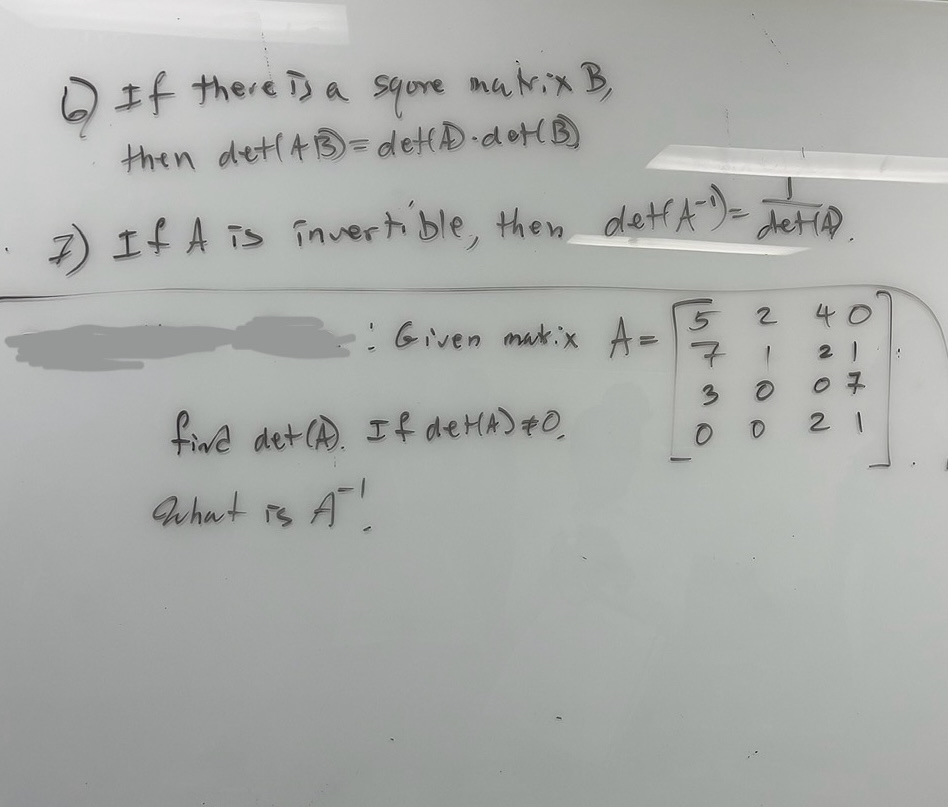 6) If there is a sqore matrix B,
then det(AB)=det(A)·det(B)
7) If A is invertible, then det(A⁻¹)= 1/det(A).
: Given matrix A= [5 2 4 0
7 1 2 1
3 0 0 7
0 0 2 1].
find det(A). If det(A)≠0.
What is A⁻¹.